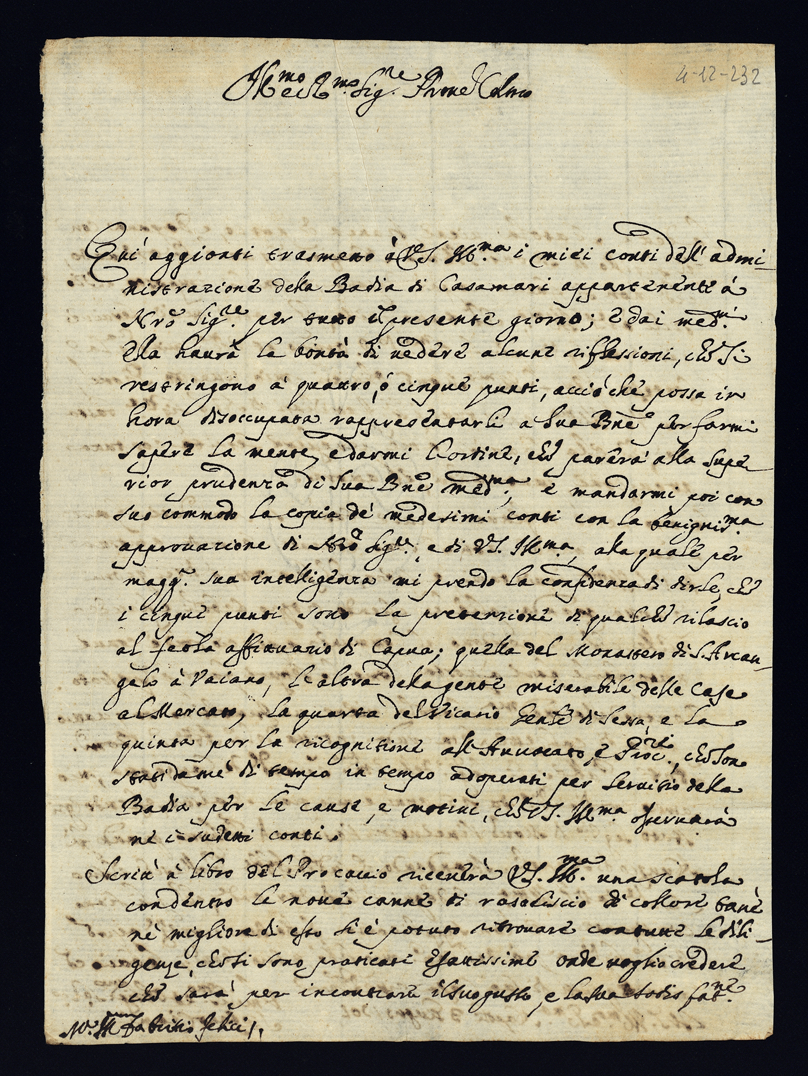 4-12-232
Ill.mo e R.mo Sig.re Prone Col.mo
Qui aggionti trasmetto à V.S. Ill.ma i miei conti dell' admi-
nistrazione della Badia di Casamari appartenenti à
Nro Sig.re per tutto il presente giorno; e dai med.mi
Ella haurà la bontà di uedere alcune riflessioni, che si
restringono à quattro, ò cinque punti, acciò che possa in
hora disoccupata rappresentarli a Sua Bne per farmi
sapere la mente, e darmi l'ordine, che parerà alla supe-
rior prudenza di Sua Bne med.ma, e mandarmi poi con
suo commodo la copia de' medesimi conti con la benignis.ma
approuazione di Nro Sig.re, e di V.S. Ill.ma, alla quale per
magg.r sua intelligenza mi prendo la confidenza di dirle, che
i cinque punti sono la pretenzione di qualche rilascio
al affittuario di Capua; quella del Monastero di S. Arcan-
gelo à Vaiano, l'altra della gente miserabile delle Case
al Mercato, la quarta del Vicario di Sessa, e la
quinta per la ricognitione all' Auuocato, e Proc.re, che son
stati da me di tempo in tempo adoperati per seruitio della
Badia per le cause, e motiui, che V.S. Ill.ma osseruarà
ne i sudetti conti.
Scritta à libro del Procaccio riceuerà V.S. Ill.ma una scatola
con dentro le noue canne di rasoliscio di collore
nè migliore di esso si è potuto ritrouare con tutte le dili-
genze, che si sono praticati esattissime onde uoglio credere
che sarà per incontrare il suo gusto, e la sua sodisfat.ne
M. Fabritio Felici